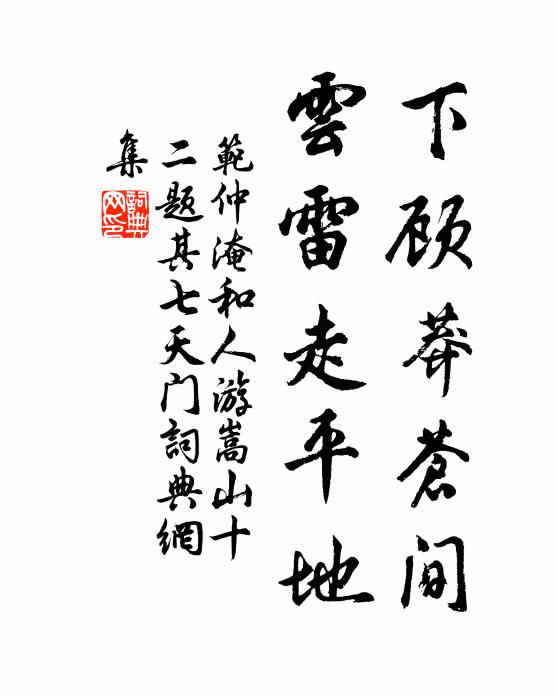 下顾莽蒼间
雲雷走平地
範仲淹和人游嵩山十
二题其七天门詞典網
集
詞典
网印